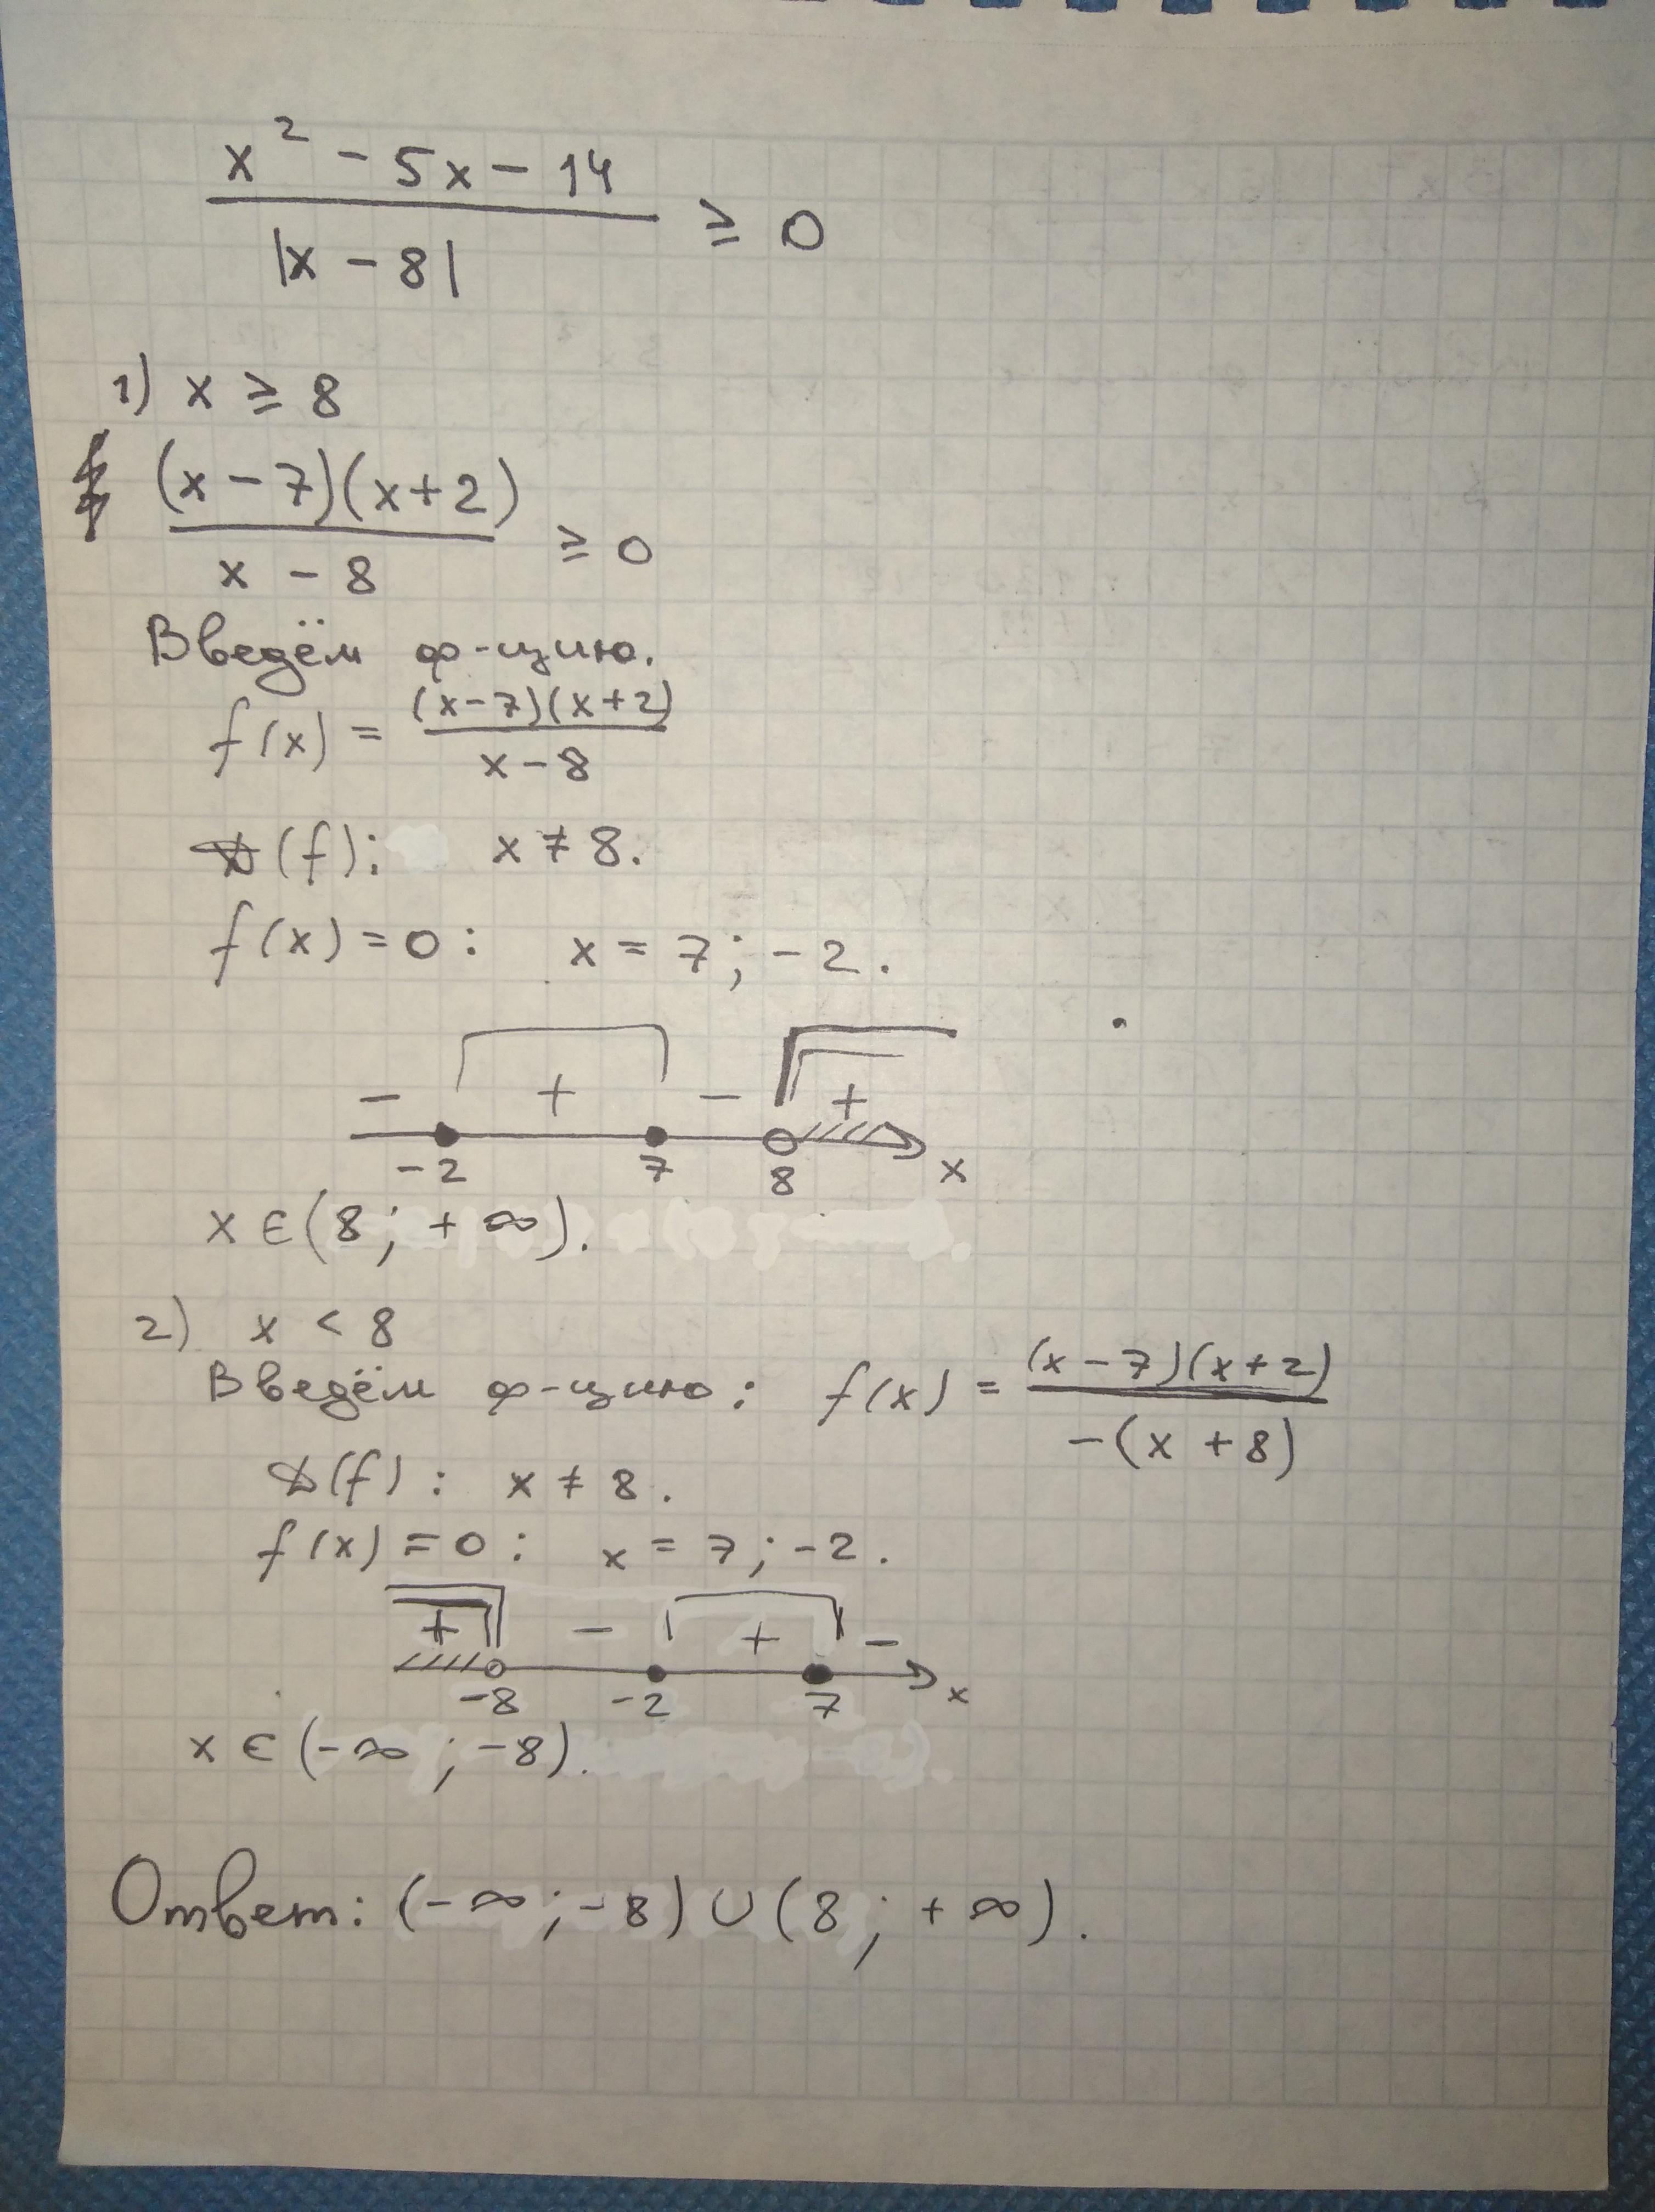 x² - 5x - 14
|x - 8| ≥ 0
1) x ≥ 8
(x - 7)(x + 2)
x - 8 ≥ 0
Введём ф-цию.
f(x) = (x-7)(x+2)
x - 8
D(f): x ≠ 8.
f(x) = 0: x = 7; -2.
- + - +
-2 7 8 x
x ∈ (8; +∞).
2) x < 8
Введём ф-цию: f(x) = (x-7)(x+2)
-(x + 8)
D(f): x ≠ 8.
f(x) = 0: x = 7; -2.
+ - + -
-8 -2 7 x
x ∈ (-∞; -8).
Ответ: (-∞; -8) ∪ (8; +∞).